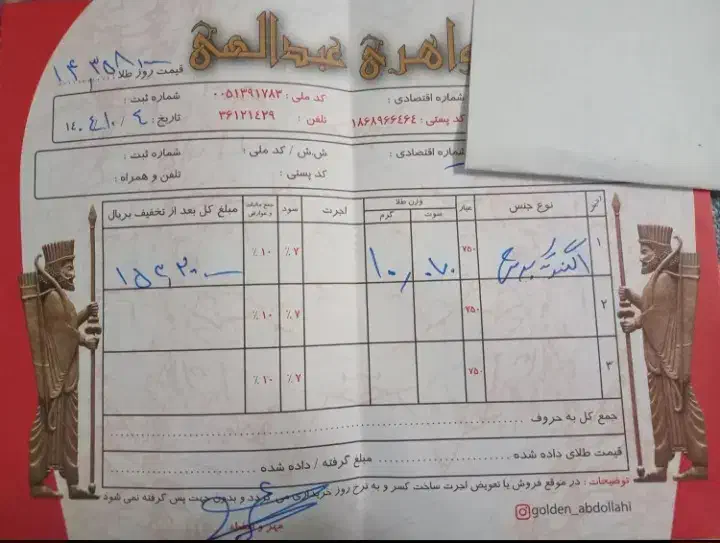 جواهری عبدالهی
قیمت روز طلا ۱۴,۳۵۸,۰۰۰
شماره اقتصادی : کد ملی : ۰۰۵۱۳۹۱۷۸۳ شماره ثبت :
کد پستی : ۱۸۶۸۹۶۶۴۶۴ تلفن : ۳۶۱۲۱۴۲۹ تاریخ :
شماره اقتصادی : ش.ش / کد ملی : شماره ثبت :
کد پستی : تلفن و همراه :
نوع جنس عیار وزن طلا سوت گرم اجرت سود جمع مالیات و عوارض مبلغ کل بعد از تخفیف بریال
۱ ۷۵۰ ۷٪ ۱۰٪
۲ ۷۵۰ ۷٪ ۱۰٪
۳ ۷۵۰ ۷٪ ۱۰٪
جمع کل به حروف
قیمت طلای داده شده مبلغ گرفته / داده شده
توضیحات : در موقع فروش یا تعویض اجرت ساخت کسر و به نرخ روز خریداری می گردد و بدون جهت پس گرفته نمی شود
مهر و امضاء
golden_abdollahi